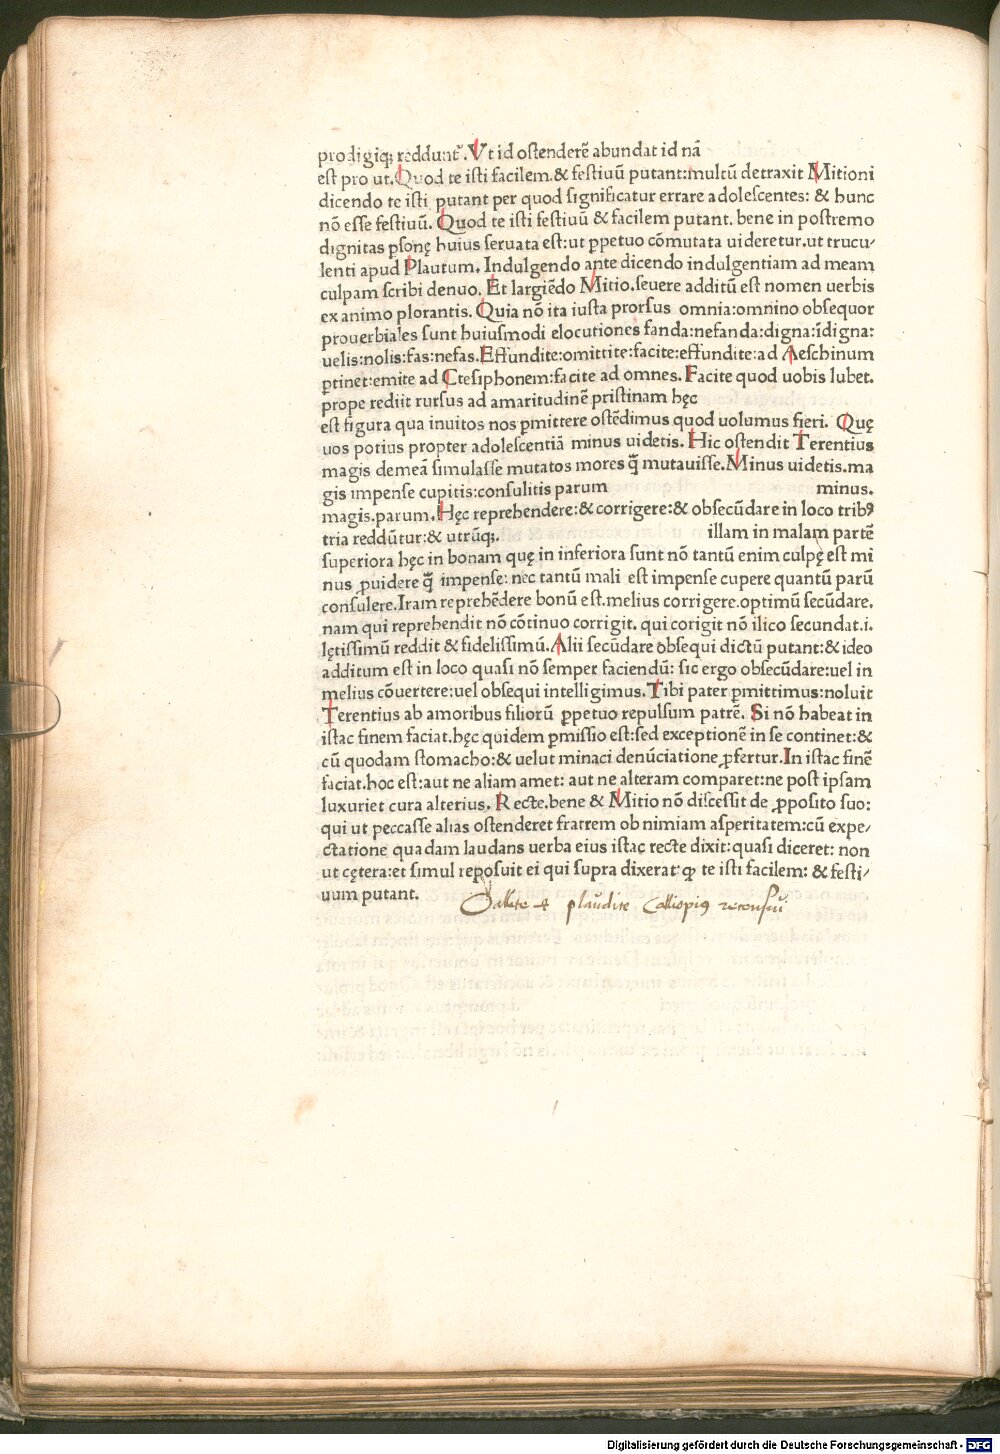 prodigiqꝫ reddunt᷑. Vt id ostenderẽ abundat id nã
est pro ut. Quod te isti facilem.& festiuũ putant:multũ detraxit Mitioni
dicendo te isti putant per quod significatur errare adolescentes: & hunc
nõ esse festiuũ. Quod te isti festiuũ & facilem putant. bene in postremo
dignitas ꝑsonę huius seruata est:ut ꝑpetuo cõmutata uideretur.ut trucu⸗
lenti apud Plautum. Indulgendo ante dicendo indulgentiam ad meam
culpam scribi denuo. Et largiẽdo Mitio.seuere additũ est nomen uerbis
ex animo plorantis. Quia nõ ita iusta prorsus omnia:omnino obsequor
prouerbiales sunt huiusmodi elocutiones fanda:nefanda:digna:ĩdigna:
uelis:nolis:fas:nefas. Effundite:omittite:facite:effundite:ad Aeschinum
ꝑtinet:emite ad Ctesiphonem:facite ad omnes. Facite quod uobis lubet.
prope rediit rursus ad amaritudinẽ pristinam hęc
est figura qua inuitos nos ꝑmittere ostẽdimus quod uolumus fieri. Quę
uos potius propter adolescentiã minus uidetis. Hic ostendit Terentius
magis demeã simulasse mutatos mores q̃ mutauisse. Minus uidetis.ma
gis impense cupitis:consulitis parum minus.
magis.parum. Hęc reprehendere:& corrigere:& obsecũdare in loco tribꝰ
tria reddũtur:& utrũqꝫ. illam in malam partẽ
superiora hęc in bonam quę in inferiora sunt nõ tantũ enim culpę est mi
nus ꝓuidere q̃ impense: nec tantũ mali est impense cupere quantũ parũ
consulere.Iram reprehẽdere bonũ est.melius corrigere.optimũ secũdare.
nam qui reprehendit nõ cõtinuo corrigit. qui corigit nõ ilico secundat.i.
lętissimũ reddit & fidelissimũ. Alii secũdare obsequi dictũ putant:& ideo
additum est in loco quasi nõ semper faciendũ: sic ergo obsecũdare:uel in
melius cõuertere:uel obsequi intelligimus. Tibi pater ꝑmittimus:noluit
Terentius ab amoribus filiorũ ꝑpetuo repulsum patrẽ. Si nõ habeat in
istac finem faciat.hęc quidem ꝑmissio est:sed exceptionẽ in se continet:&
cũ quodam stomacho:& uelut minaci denũciatione ꝓfertur.In istac finẽ
faciat.hoc est:aut ne aliam amet: aut ne alteram comparet:ne post ipsam
luxuriet cura alterius. Recte.bene & Mitio nõ discessit de ꝓposito suo:
qui ut peccasse alias ostenderet fratrem ob nimiam asperitatem:cũ expe⸗
ctatione quadam laudans uerba eius istac recte dixit:quasi diceret: non
ut cętera:et simul reposuit ei qui supra dixerat ꝙ te isti facilem: & festi⸗
uum putant.
Vallete et plaudite Calliopiꝰ recensui
Digitalisierung gefördert durch die Deutsche Forschungsgemeinschaft - DFG